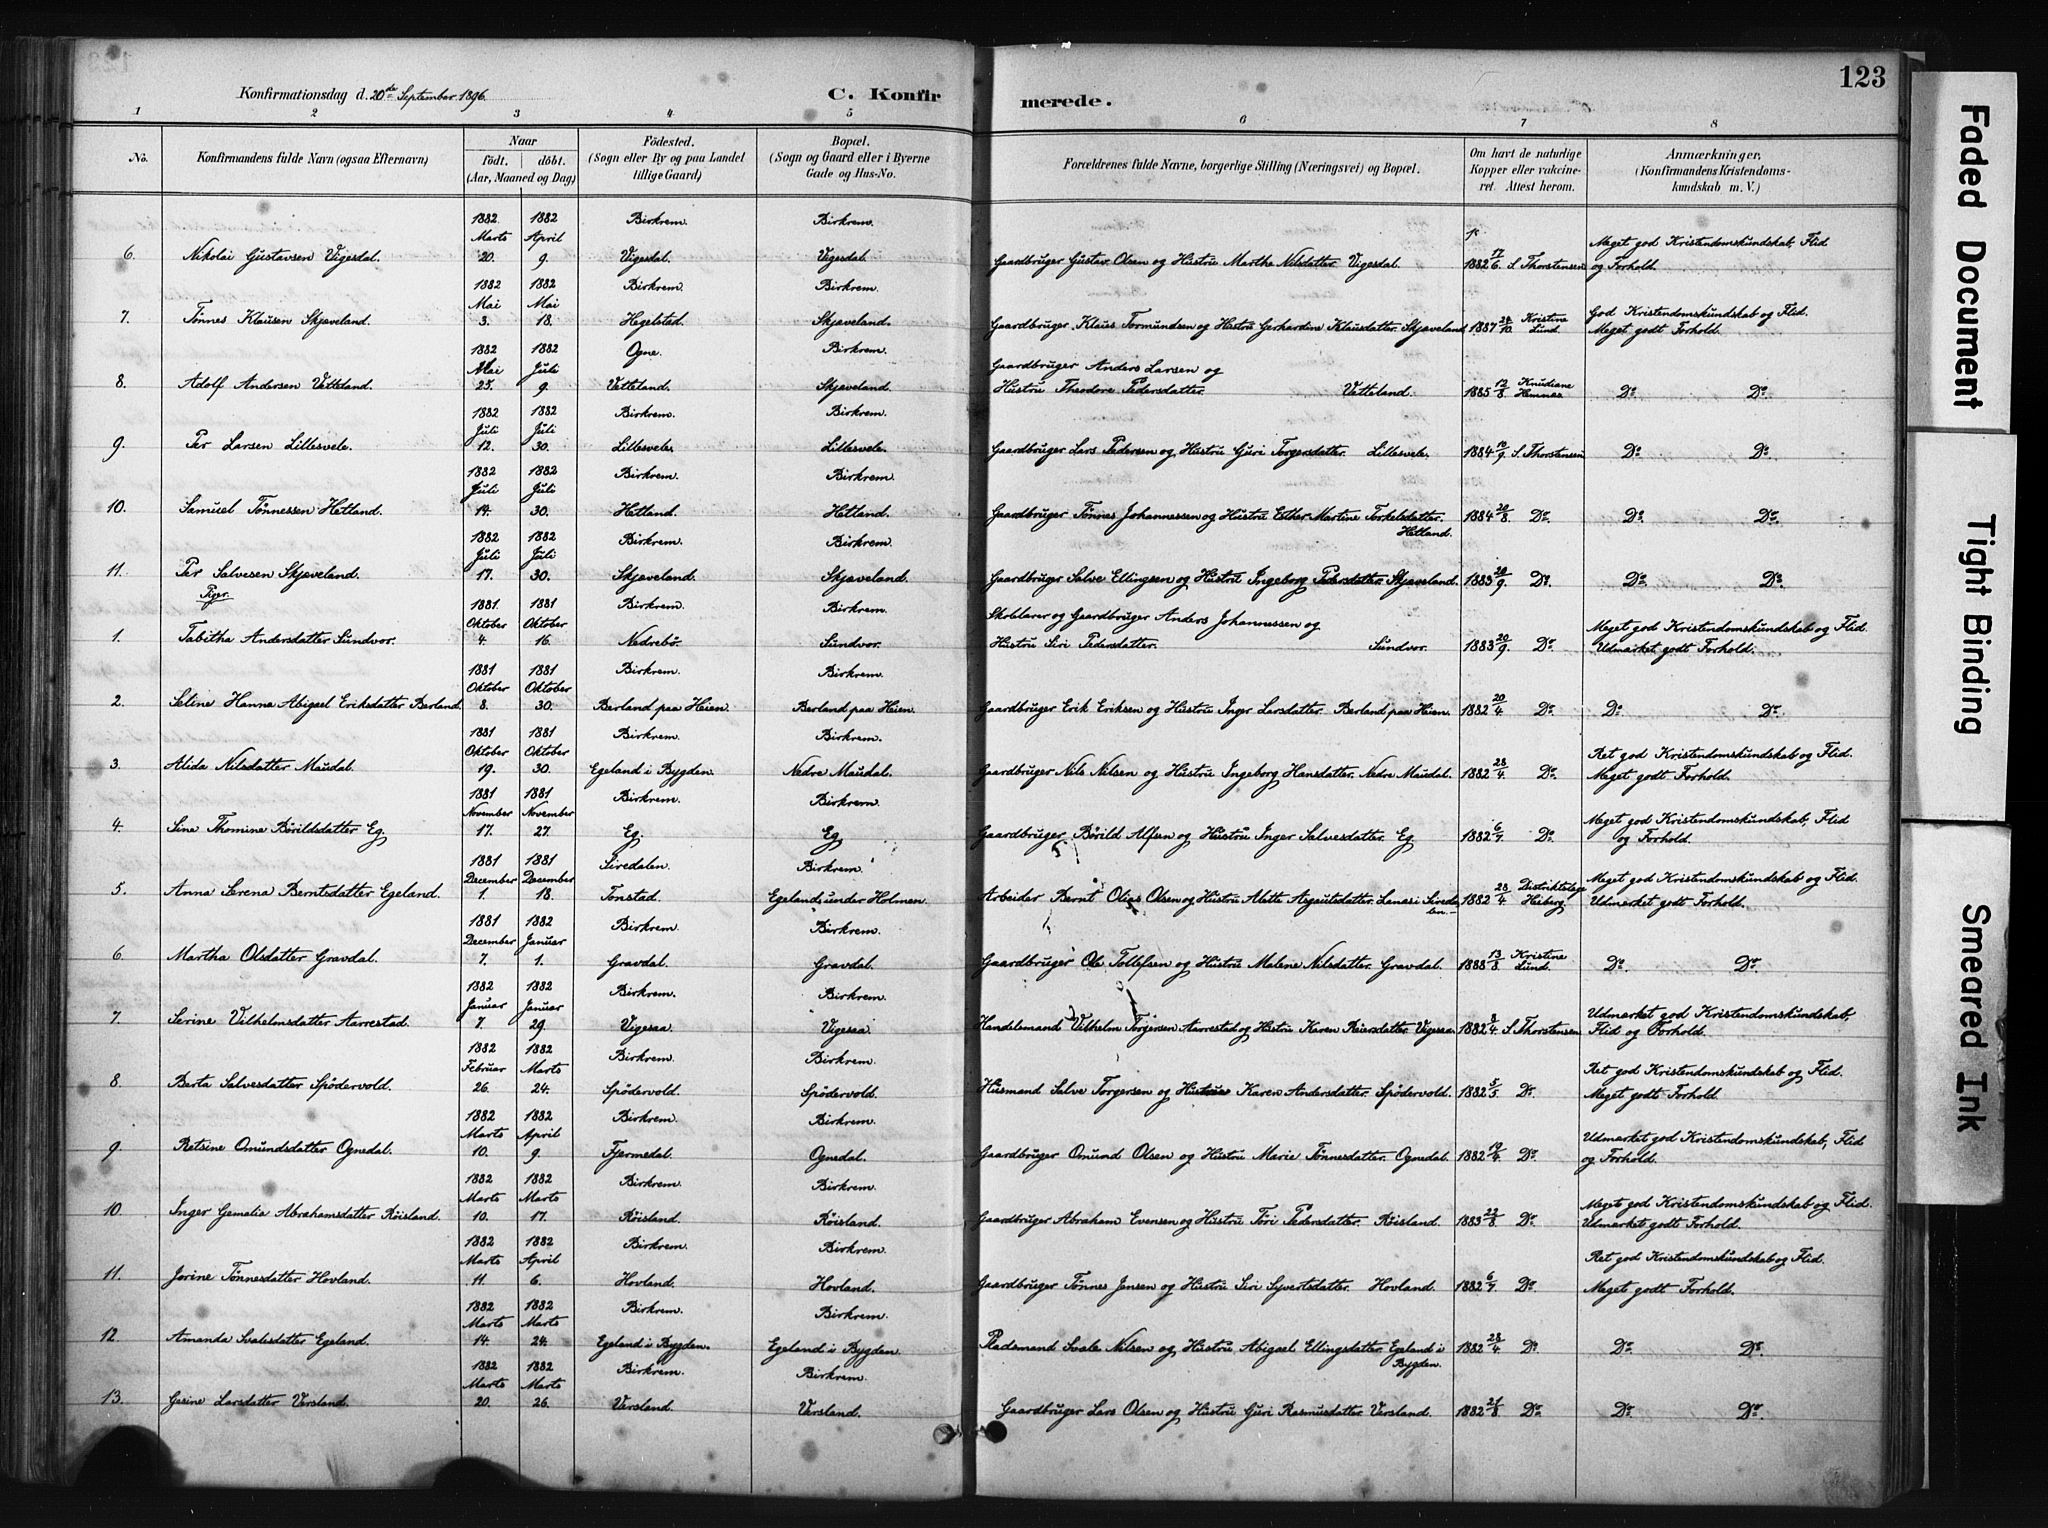 123
Konfirmationsdag d. 20de September 1896. C. Konfirmerede.
1 2 3 4 5 6 7 8
No. Konfirmandens fulde Navn (ogsaa Efternavn) Naar født. døbt. (Aar, Maaned og Dag) Fødested. (Sogn eller By og paa Landet tillige Gaard) Bopæl. (Sogn og Gaard eller i Byerne Gade og Hus-No. Forældrenes fulde Navne, borgerlige Stilling (Næringsvei) og Bopæl. Om havt de naturlige Kopper eller vakcineret. Attest herom. Anmærkninger, (Konfirmandens Kristendomskundskab m. V.)
6. Nikolai Gustavsen Vigesdal. 1882 Marts 20. 1882 April 9. Birkrem. Vigesdal. Birkrem. Vigesdal. Gaardbruger Gustav Olsen og Hustru Marthe Nilsdatter Vigesdal. 1882 17/6. S. Thorstensen Meget god Kristendomskundskab, Flid og Forhold.
7. Tønnes Klausen Skjæveland. 1882 Mai 3. 1882 Mai 18. Birkrem. Hegelstad. Birkrem. Skjæveland. Gaardbruger Klaus Tormundsen og Hustru Gerhardine Klausdatter. Skjæveland 1887 24/10 Kristine Lund. God Kristendomskundskab og Flid. Meget godt Forhold.
8. Adolf Andersen Vetteland. 1882 Mai 25. 1882 Juli 9. Ogne. Vetteland. Birkrem. Skjæveland. Gaardbruger Anders Larsen og Hustru Theodore Pedersdatter. Vetteland. 1885 12/8 Knudiane Hemnes Do. Do.
9. Per Larsen Lillesvele. 1882 Juli 12. 1882 Juli 30. Birkrem. Lillesvele. Birkrem. Lillesvele. Gaardbruger Lars Pedersen og Hustru Guri Torgersdatter. Lillesvele. 1884 10/9. S. Thorstensen Do. Do.
10. Samuel Tønnessen Hetland. 1882 Juli 14. 1882 Juli 30. Birkrem. Hetland. Birkrem. Hetland. Gaardbruger Tønnes Johannessen og Hustru Esther Martine Torkelsdatter. Hetland. 1884 20/8. Do. Do. Do.
11. Per Salvesen Skjæveland. 1882 Juli 17. 1882 Juli 30. Birkrem. Skjæveland. Birkrem. Skjæveland. Gaardbruger Salve Ellingsen og Hustru Ingeborg Pedersdatter. Skjæveland. 1883 20/9 Do. Do. Do.
Piger.
1. Tabitha Andersdatter Sundvor. 1881. Oktober 4. 1881 Oktober 16. Birkrem. Nedrebø. Birkrem. Sundvor. Skolelærer og Gaardbruger Anders Johannessen og Hustru Siri Pedersdatter. Sundvor. 1883 20/9 Do. Meget god Kristendomskundskab og Flid. Udmærket godt Forhold.
2. Seline Hanna Abigael Eriksdatter Berland. 1881 Oktober 8. 1881 Oktober 30. Birkrem. Berland paa Heien. Birkrem. Berland paa Heien. Gaardbruger Erik Eriksen og Hustru Inger Larsdatter. Berland paa Heien. 1882 20/4 Do. Do. Do.
3. Alida Nilsdatter Maudal. 1881 Oktober 19. 1881 Oktober 30. Birkrem. Egeland i Bygden. Birkrem. Nedre Maudal. Gaardbruger Nils Nilsen og Hustru Ingeborg Hansdatter. Nedre Maudal. 1882 28/4 Do. Ret god Kristendomskundskab og Flid. Meget godt Forhold.
4. Sine Thomine Børildsdatter Eg. 1881 November 17. 1881 November 27. Birkrem. Eg. Birkrem. Eg. Gaardbruger Børild Alfsen og Hustru Inger Salvesdatter. Eg 1882 6/7 Do. Meget god Kristendomskundskab, Flid og Forhold.
5. Anna Serena Berntsdatter Egeland. 1881 December 1. 1881 December 18. Siredalen. Tonstad. Birkrem. Egeland under Holmen. Arbeider Bernt Olias Olsen og Hustru Alette Asgautsdatter. Lunasi Siredalen 1882 28/4 Distriktslæge Heiberg Meget god Kristendomskundskab og Flid. Udmærket godt Forhold.
6. Martha Olsdatter Gravdal. 1881 December 7. 1882 Januar 1. Birkrem. Gravdal. Birkrem. Gravdal. Gaardbruger Ole Tollefsen og Hustru Malene Nilsdatter. Gravdal. 1888 13/8 Kristine Lund. Do. Do.
7. Serine Vilhelmsdatter Aarrestad. 1882 Januar 7. 1882 Januar 29. Birkrem. Vigesaa. Birkrem. Vigesaa. Handelsmand Vilhelm Torgersen Aarrestad og Hustru Karen Reiersdatter. Vigesaa. 1882 8/4. S. Thorstensen Udmærket god Kristendomskundskab, Flid og Forhold.
8. Berta Salvesdatter Spødervold. 1882 Februar 26. 1882 Marts 24. Birkrem. Spødervold. Birkrem. Spødervold. Husmand Salve Torgersen og Hustru Karen Andersdatter. Spødervold. 1882 5/5. Do. Ret god Kristendomskundskab og Flid. Meget godt Forhold.
9. Retsine Omundsdatter Ognedal. 1882 Marts 10. 1882 April 9. Birkrem. Fjermedal. Birkrem. Ognedal. Gaardbruger Omund Olsen og Hustru Marie Tønnesdatter. Ognedal. 1882 19/4 Do. Udmærket god Kristendomskundskab, Flid og Forhold.
10. Inger Gemalia Abrahamsdatter Røisland. 1882 Marts 10. 1882 Marts 17. Birkrem. Røisland. Birkrem. Røisland. Gaardbruger Abraham Evensen og Hustru Tøri Pedersdatter. Røisland. 1883 22/8 Do. Meget god Kristendomskundskab og Flid. Udmærket godt Forhold.
11. Jorine Tønnesdatter Hovland. 1882 Marts 11. 1882 April 6. Birkrem. Hovland. Birkrem. Hovland. Gaardbruger Tønnes Jensen og Hustru Siri Syvertsdatter. Hovland. 1882 6/7 Do. Ret god Kristendomskundskab og Flid. Meget godt Forhold.
12 Amanda Svalesdatter Egeland. 1882 Marts 14. 1882 Marts 24. Birkrem. Egeland i Bygden. Birkrem. Egeland i Bygden. Pladsmand Svale Nilsen og Hustru Abigael Ellingsdatter. Egeland i Bygden. 1882 28/4 Do. Do. Do.
13. Gesine Larsdatter Versland. 1882 Marts 20. 1882 Marts 26. Birkrem. Versland. Birkrem. Versland. Gaardbruger Lars Olsen og Hustru Guri Rasmusdatter. Versland. 1882 21/8 Do. Do. Do.
Faded Document
Tight Binding
Smeared Ink